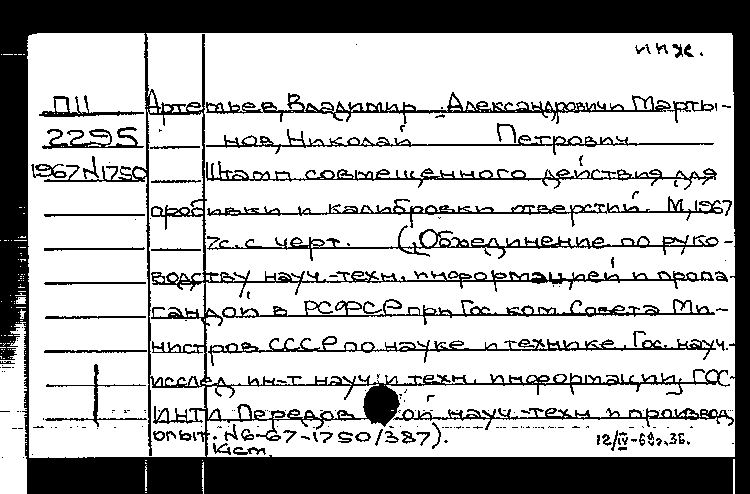 инж.
П11 Артемьев, Владимир Александрович и Марты-
2295 нов, Николай Петрович
1967 N1750 Штамп совмещенного действия для
пробивки и калибровки отверстий. М, 1967
7с. с черт. (Объединение по руко-
водству науч.-техн. информацией и пропа-
гандой в РСФСР при Гос. ком. Совета Ми-
нистров СССР по науке и технике. Гос. науч.-
исслед. ин-т науч. и техн. информации, ГОС-
ИНТИ. Передов ой науч.-техн и производ,
опыт. N6-67-1750/387).
1 кст. 12/IV-68г. 36.